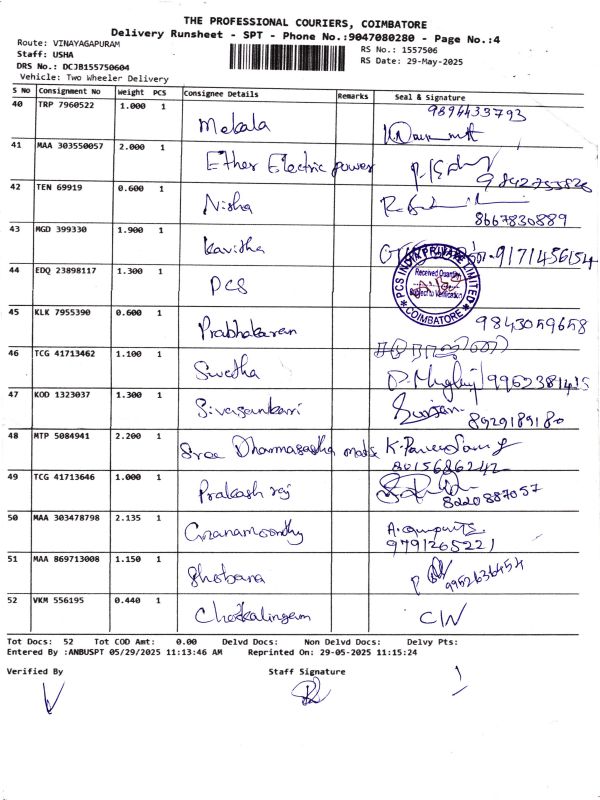 THE PROFESSIONAL COURIERS, COIMBATORE
Delivery Runsheet - SPT - Phone No.:9047080280 - Page No.:4
Route: VINAYAGAPURAM
Staff: USHA
DRS No.: DCJB155750604
Vehicle: Two Wheeler Delivery
RS No.: 1557506
RS Date: 29-May-2025
S No Consignment No Weight PCS Consignee Details Remarks Seal & Signature
40 TRP 7960522 1.000 1 Mekala 9894433793
41 MAA 303550057 2.000 1 Ether Electric power
42 TEN 69919 0.600 1 Nisha 8667830889
43 MGD 399330 1.900 1 Kavitha 9171456154
44 EDQ 23898117 1.300 1 PCS
PCS INDIA PRIVATE LIMITED
Received Quantity
Subject to Verification
COIMBATORE
45 KLK 7955390 0.600 1 Prabhakaran 9843059658
46 TCG 41713462 1.100 1 Swetha
47 KOD 1323037 1.300 1 Sivasankari 8929189180
48 MTP 5084941 2.200 1 Sree 8015686242
49 TCG 41713646 1.000 1 Prakash raj 8220887057
50 MAA 303478798 2.135 1 Gnanamoorthy 9791265221
51 MAA 869713008 1.150 1 Shobana 9952636454
52 VKM 556195 0.440 1 Chokkalingam
Tot Docs: 52 Tot COD Amt: 0.00 Delvd Docs: Non Delvd Docs: Delvy Pts:
Entered By :ANBUSPT 05/29/2025 11:13:46 AM Reprinted On: 29-05-2025 11:15:24
Verified By Staff Signature